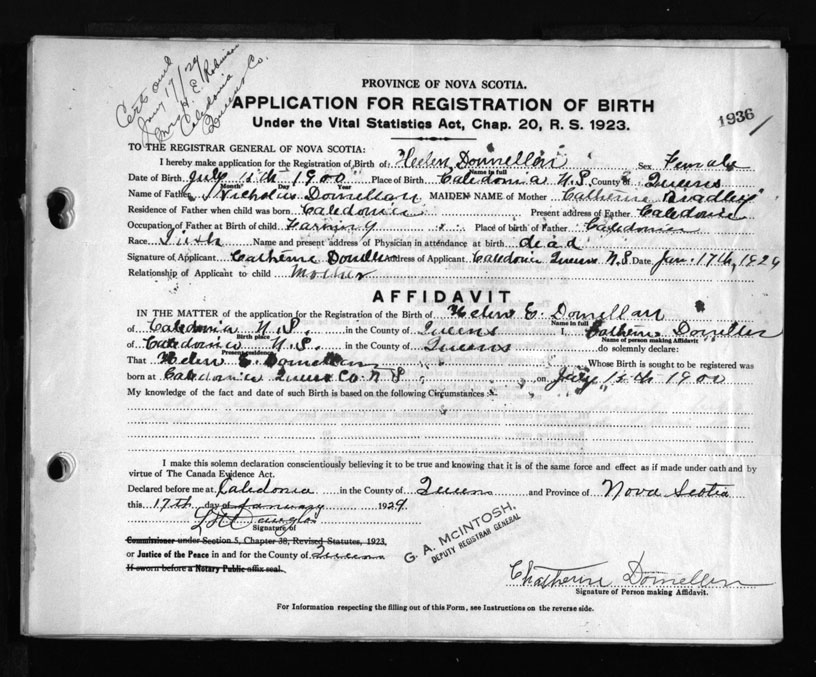 Certs and
Jany 17/29
Mrs H. E. Robinson
Caledonia
Queens Co.
PROVINCE OF NOVA SCOTIA.
APPLICATION FOR REGISTRATION OF BIRTH
1936/
Under the Vital Statistics Act, Chap. 20, R. S. 1923.
TO THE REGISTRAR GENERAL OF NOVA SCOTIA:
I hereby make application for the Registration of Birth of: Helen Donnellan Sex Female
Name in full
Date of Birth July 1900 Place of Birth Caledonia N.S. County of Queens
Month Day Year
Name of Father Nicholas Donnellan MAIDEN NAME of Mother Catherine Bradley
Residence of Father when child was born Caledonia Present address of Father Caledonia
Occupation of Father at Birth of child Farming Place of birth of Father Caledonia
Race Name and present address of Physician in attendance at birth dead
Signature of Applicant Catherine Donellan Address of Applicant Caledonia Queens N.S. Date Jan. 17th, 1929
Relationship of Applicant to child Mother
AFFIDAVIT
IN THE MATTER of the application for the Registration of the Birth of Helen E. Donnellan
Name in full
of Caledonia N.S. in the County of Queens I, Catherine Donnellan
Birth place Name of person making Affidavit
of Caledonia N.S. in the County of Queens do solemnly declare:
Present residence
That Helen E. Donnellan Whose Birth is sought to be registered was
born at Caledonia Queens Co. N.S. on July 1900
My knowledge of the fact and date of such Birth is based on the following Circumstances:
I make this solemn declaration conscientiously believing it to be true and knowing that it is of the same force and effect as if made under oath and by
virtue of The Canada Evidence Act.
Declared before me at Caledonia in the County of Queens and Province of Nova Scotia
this 17th day of January 1929.
Signature of
Commissioner under Section 5, Chapter 38, Revised Statutes, 1923,
or Justice of the Peace in and for the County of Queens
If sworn before a Notary Public affix seal.
G. A. McINTOSH,
DEPUTY REGISTRAR GENERAL
Chatherine Donnellan
Signature of Person making Affidavit.
For Information respecting the filling out of this Form, see Instructions on the reverse side.